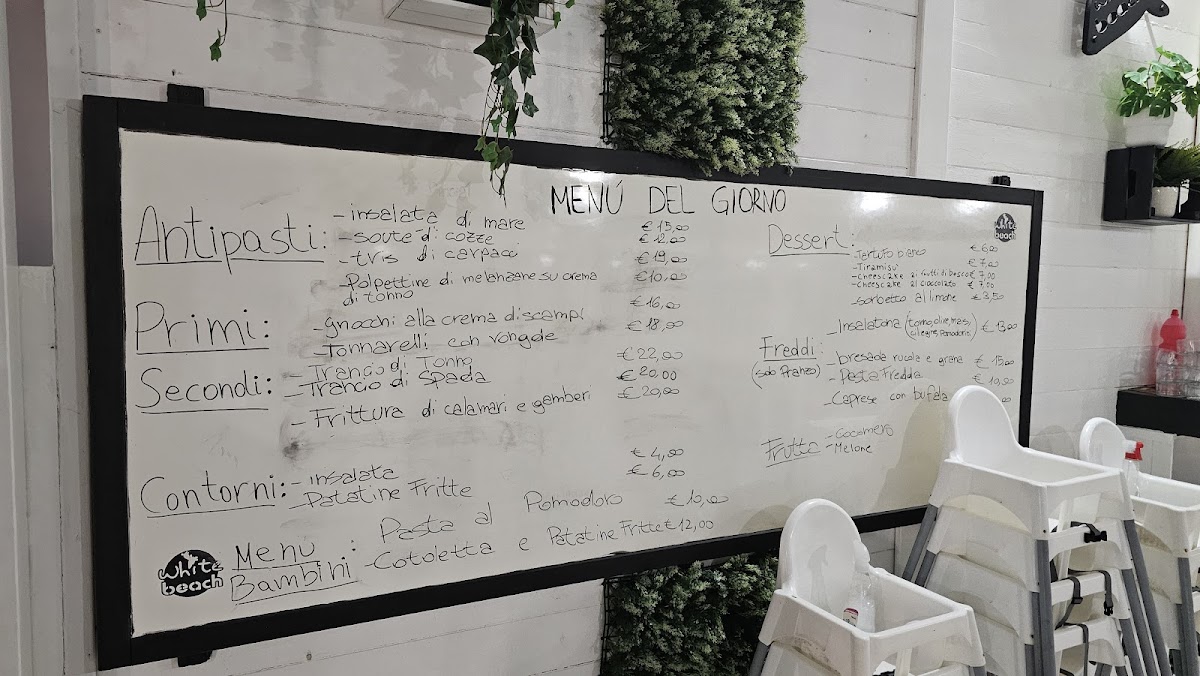 MENÚ DEL GIORNO
Antipasti:
-insalata di mare € 15,00
-soutè di cozze € 12,00
-tris di carpacci € 19,00
-Polpettine di melanzane su crema € 10,00
di tonno
Primi:
-gnocchi alla crema di scampi € 16,00
-Tonnarelli con vongole € 18,00
Secondi:
-Trancio di Tonno € 22,00
-Trancio di Spada € 20,00
-Frittura di calamari e gamberi € 20,00
Contorni:
-insalata € 4,00
-Patatine Fritte € 6,00
Menu
Bambini:
Pasta al Pomodoro € 10,00
-Cotoletta e Patatine Fritte € 12,00
white
beach
white
beach
Dessert:
-Tartufo bianco € 6,00
-Tiramisù € 7,00
-cheesecake ai frutti di bosco € 7,00
-cheesecake al cioccolato € 7,00
-sorbetto al limone € 3,50
Freddi:
(solo Pranzo)
-Insalatona (tonno, olive, mais, € 13,00
ciliegine, Pomodorini)
-bresaola rucola e grana € 15,00
-Pasta Fredda € 10,00
-Caprese con bufala
Frutta
-Cocomero
-Melone